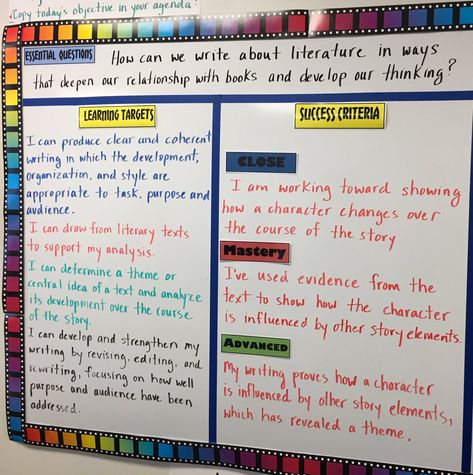 ✓Copy today's objective in your agenda!
ESSENTIAL QUESTIONS
How can we write about literature in ways
that deepen our relationship with books and develop our thinking?
LEARNING TARGETS
I can produce clear and coherent
writing in which the development,
organization, and style are
appropriate to task, purpose and
audience.
I can draw from literary texts
to support my analysis.
I can determine a theme or
central idea of a text and analyze
its development over the course
of the story.
I can develop and strengthen my
writing by revising, editing, and
rewriting, focusing on how well
purpose and audience have been
addressed.
SUCCESS CRITERIA
CLOSE
I am working toward showing
how a character changes over
the course of the story
Mastery
I've used evidence from the
text to show how the character
is influenced by other story elements.
ADVANCED
My writing proves how a character
is influenced by other story elements,
which has revealed a theme.